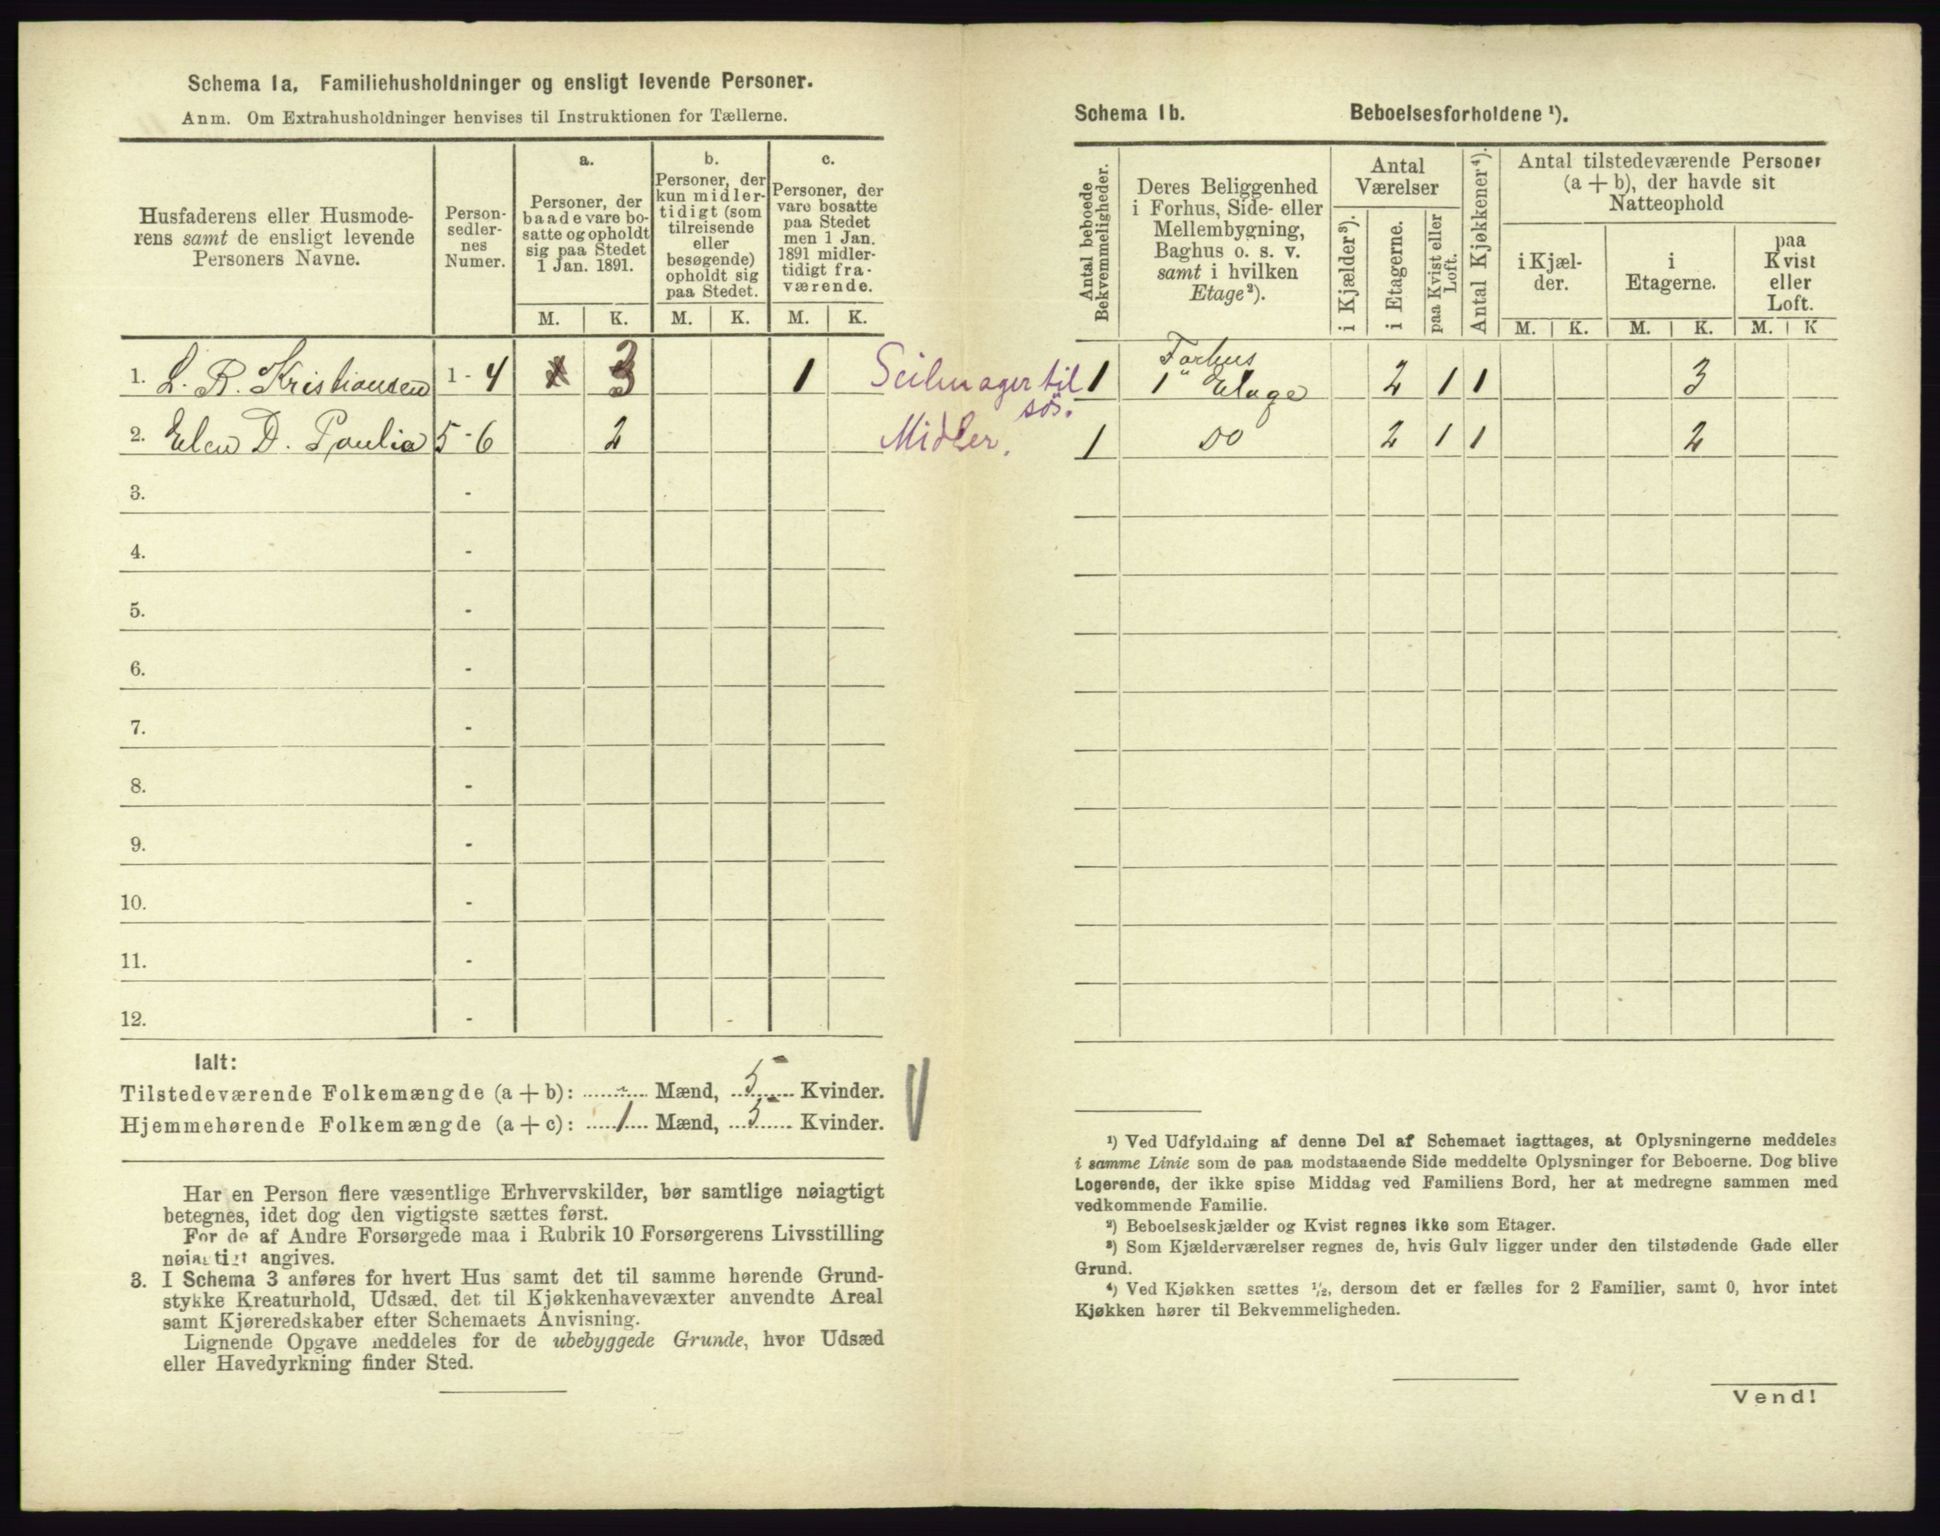 Schema 1a, Familiehusholdninger og ensligt levende Personer.
Anm. Om Extrahusholdninger henvises til Instruktionen for Tællerne.
Husfaderens eller Husmoderens samt de ensligt levende Personers Navne.
Personsedlernes Numer.
a.
Personer, der baade vare bosatte og opholdt sig paa Stedet 1 Jan. 1891.
b.
Personer, der kun midlertidigt (som tilreisende eller besøgende) opholdt sig paa Stedet.
c.
Personer, der vare bosatte paa Stedet men 1 Jan. 1891 midlertidigt fraværende.
M. K. M. K. M. K.
1. L. R. Kristiansen 1 - 4 3 1 Seilmager til søs.
2. Elen D. Paulia 5 - 6 2 Midler.
3. -
4. -
5. -
6. -
7. -
8. -
9. -
10. -
11. -
12. -
Ialt:
Tilstedeværende Folkemængde (a + b): - Mænd, 5 Kvinder.
Hjemmehørende Folkemængde (a + c): 1 Mænd, 5 Kvinder.
Har en Person flere væsentlige Erhvervskilder, bør samtlige nøiagtigt
betegnes, idet dog den vigtigste sættes først.
For de af Andre Forsørgede maa i Rubrik 10 Forsørgerens Livsstilling
nøiagtigt angives.
3. I Schema 3 anføres for hvert Hus samt det til samme hørende Grund-
stykke Kreaturhold, Udsæd, det til Kjøkkenhavevæxter anvendte Areal
samt Kjøreredskaber efter Schemaets Anvisning.
Lignende Opgave meddeles for de ubebyggede Grunde, hvor Udsæd
eller Havedyrkning finder Sted.
Schema 1b. Beboelsesforholdene ¹).
Antal beboede Bekvemmeligheder.
Deres Beliggenhed i Forhus, Side- eller Mellembygning, Baghus o. s. v. samt i hvilken Etage²).
Antal Værelser
i Kjælder³).
i Etagerne.
paa Kvist eller Loft.
Antal Kjøkkener⁴).
Antal tilstedeværende Personer
(a + b), der havde sit
Natteophold
i Kjælder.
i Etagerne.
paa Kvist eller Loft.
M. K. M. K. M. K
1 Forhus 1" Etage 2 1 1 3
1 do 2 1 1 2
¹) Ved Udfyldning af denne Del af Schemaet iagttages, at Oplysningerne meddeles
i samme Linie som de paa modstaaende Side meddelte Oplysninger for Beboerne. Dog blive
Logerende, der ikke spise Middag ved Familiens Bord, her at medregne sammen med
vedkommende Familie.
²) Beboelseskjælder og Kvist regnes ikke som Etager.
³) Som Kjælderværelser regnes de, hvis Gulv ligger under den tilstødende Gade eller
Grund.
⁴) Ved Kjøkken sættes ¹/₂, dersom det er fælles for 2 Familier, samt 0, hvor intet
Kjøkken hører til Bekvemmeligheden.
Vend!